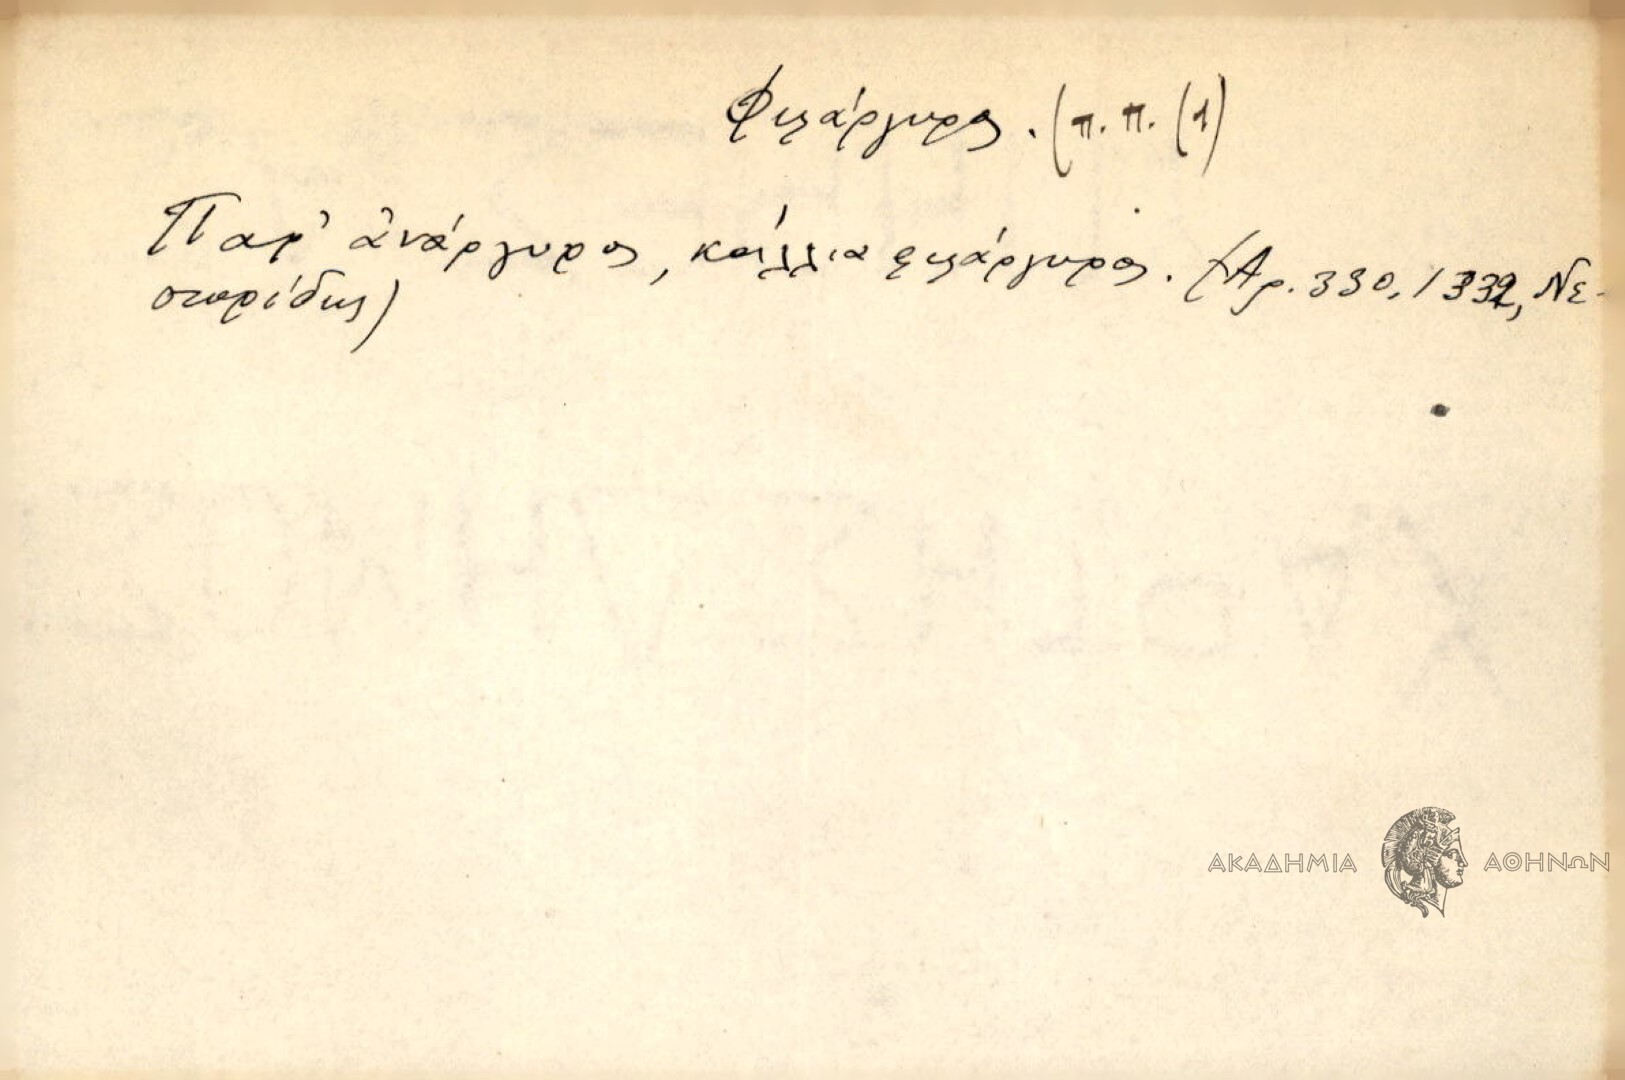 Φιλάργυρος. (π.π. (1)
Παρ' ἀνάργυρος, κάλλια φιλάργυρος. (Αρ. 330, 1332, Νε-
στορίδης)
ΑΚΑΔΗΜΙΑ ΑΘΗΝΩΝ